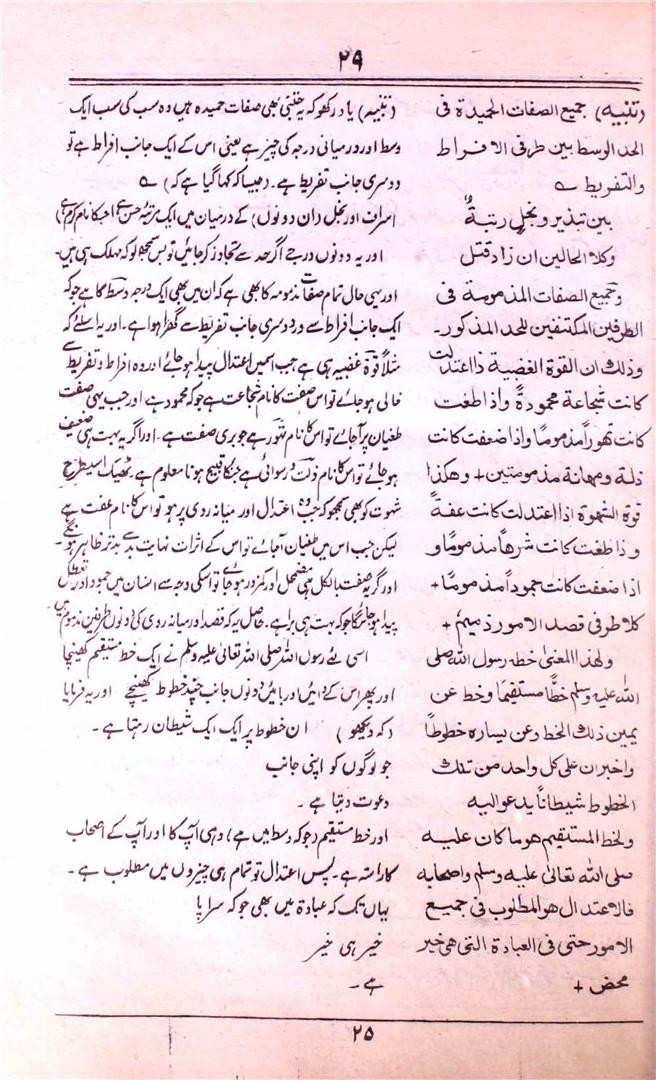 ۲۹
(تنبیه) جمیع الصفات الحمیدة فی
الحد الوسط بین طرفی الافراط
والتفریط ے
بین تبذیر و بخل رتبةٌ
وکلا الحالین ان زاد قتل
وجمیع الصفات المذمومة فی
الطرفین المکتنفین للحد المذکور۔
وذلك ان القوة الغضبیة ذا اعتدلت
کانت شجاعة محمودةً واذا طغت
کانت تھوراً مذموماً واذا ضعفت کانت
ذلة ومھانة مذمومتین + وھکذا
قوة الشھوة اذا اعتدلت کانت عفةً
وذا طغت کانت شرھاً مذموماً و
اذا ضعفت کانت جموداً مذموماً +
کلا طرفی قصد الامور ذمیم +
ولھذا المعنیٰ خطه رسول الله صلی
الله علیه وسلم خطًّا مستقیمًا وخط عن
یمین ذلك الخط وعن یساره خطوطاً
واخبر ان علی کل واحد من تلك
الخطوط شیطاناً یدعو الیه
ولخط المستقیم ھو ما کان علیه
صلی الله تعالیٰ علیه وسلم واصحابه
فالاعتدال ھو المطلوب فی جمیع
الامور حتی فی العبادة التی ھی خیر
محض +
(تنبیہ) یاد رکھو کہ یہ جتنی بھی صفات حمیدہ ہیں وہ سب کی سب ایک
وسط اور درمیانی درجہ کی چیز ہے یعنی اس کے ایک جانب افراط ہے تو
دوسری جانب تفریط ہے۔ (جیسا کہ کہا گیا ہے کہ) ے
اسراف اور بخل (ان دونوں) کے درمیان میں ایک رتبۂ حسن ہے (جسکا نام کرم ہے)
اور یہ دونوں درجے اگر حد سے تجاوز کر جائیں تو بس سمجھ لو کہ مہلک ہی ہیں۔
اور یہی حال تمام صفات مذمومہ کا بھی ہے کہ ان میں بھی ایک درجہ وسط کا ہے جو کہ
ایک جانب افراط سے اور دوسری جانب تفریط سے گھرا ہوا ہے۔ اور یہ اسلئے کہ
مثلاً قوۃ غضبیہ ہی ہے جب اسمیں اعتدال پیدا ہو جائے اور وہ افراط و تفریط سے
خالی ہو جائے تو اس صفت کا نام شجاعت ہے جو کہ محمود ہے اور جب یہی صفت
طغیان پر آجائے تو اس کا نام تہور ہے جو بری صفت ہے۔ اور اگر یہ بہت ہی ضعیف
ہو جائے تو اس کا نام ذلت و رسوائی ہے جنکا قبیح ہونا معلوم ہے۔ ٹھیک اسیطرح
شہوت کو بھی سمجھو کہ جب وہ اعتدال اور میانہ روی پر ہو تو اس کا نام عفت ہے
لیکن جب اس میں طغیان آجائے تو اس کے اثرات نہایت بد سے بدتر ظاہر ہونگے۔
اور اگر یہ صفت بالکل ہی مضمحل اور کمزور ہو جائے تو اسکی وجہ سے انسان میں جمود اور تعطل
پیدا ہو جائیگا جو کہ بہت ہی برا ہے۔ حاصل یہ کہ قصد اور میانہ روی کی دونوں طرفین مذموم ہیں
اسی لئے رسول اللہ صلی اللہ تعالیٰ علیہ وسلم نے ایک خط مستقیم کھینچا
اور پھر اس کے دائیں اور بائیں دونوں جانب چند خطوط کھینچے اور یہ فرمایا
(کہ دیکھو) ان خطوط پر ایک ایک شیطان رہتا ہے۔
جو لوگوں کو اپنی جانب
دعوت دیتا ہے۔
اور خط مستقیم (جو کہ وسط میں ہے) وہی آپ کا اور آپ کے اصحاب
کا راستہ ہے۔ پس اعتدال تو تمام ہی چیزوں میں مطلوب ہے۔
یہاں تک کہ عبادۃ میں بھی جو کہ سراپا
خیر ہی خیر
ہے۔
۲۵